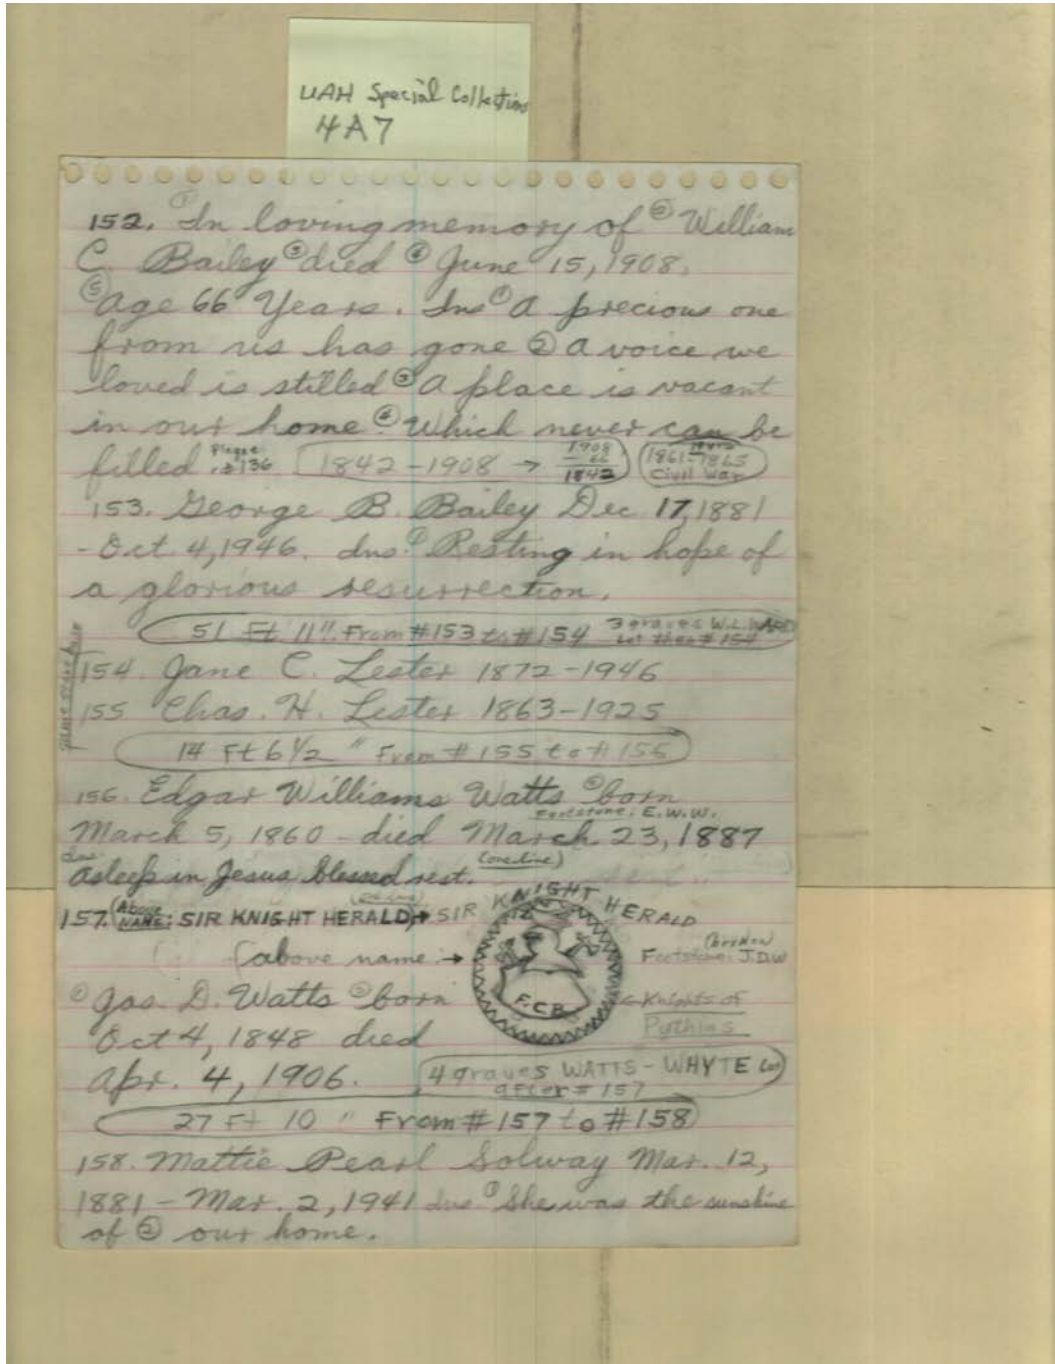 UAH Special Collection
4A7
152. ① In loving memory of ② William
C. Bailey ③ died ④ June 15, 1908.
⑤ Age 66 Years. Ins ① A precious one
from us has gone ② A voice we
loved is stilled ③ A place is vacant
in our home ④ Which never can be
filled. #136 1842-1908 → 1908 - 66 1842 1861-1865 Civil War
153. George B. Bailey Dec 17, 1881
- Oct 4, 1946. Ins. ① Resting in hope of
a glorious resurrection.
51 Ft 11" From #153 to #154 3 graves W.L. WARD Lot then #154
154. Jane C. Lester 1872-1946
155 Chas. H. Lester 1863-1925
14 Ft 6 1/2 " From #155 to #156
156. Edgar Williams Watts ② born
Footstone: E.W.W.
March 5, 1860 - died March 23, 1887
Ins (one line)
Asleep in Jesus blessed rest.
157. (Above NAME: SIR KNIGHT HERALD) → SIR KNIGHT HERALD
(above name → Footstone: J.D.W (broken)
F.C.B.
① Jas. D. Watts ② born ← Knights of
Oct 4, 1848 died Pythias
Apr. 4, 1906. 4 graves WATTS - WHYTE Lot
after #157
27 Ft 10 " From #157 to #158
158. Mattie Pearl Solway Mar. 12,
1881 - Mar. 2, 1941 Ins ① She was the sunshine
of ② our home.